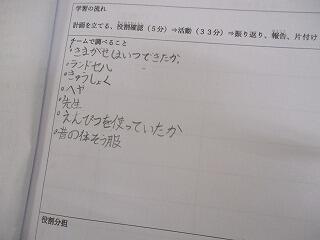 学習の流れ
計画を立てる、役割確認（5分）⇒活動（33分）⇒振り返り、報告、片付け
チームで調べること
。さまがせはいつできたか
。ランドセル
。きゅうしょく
。ヘヤ
。先生
。えんぴつを使っていたか
。昔の体そう服
役割分担